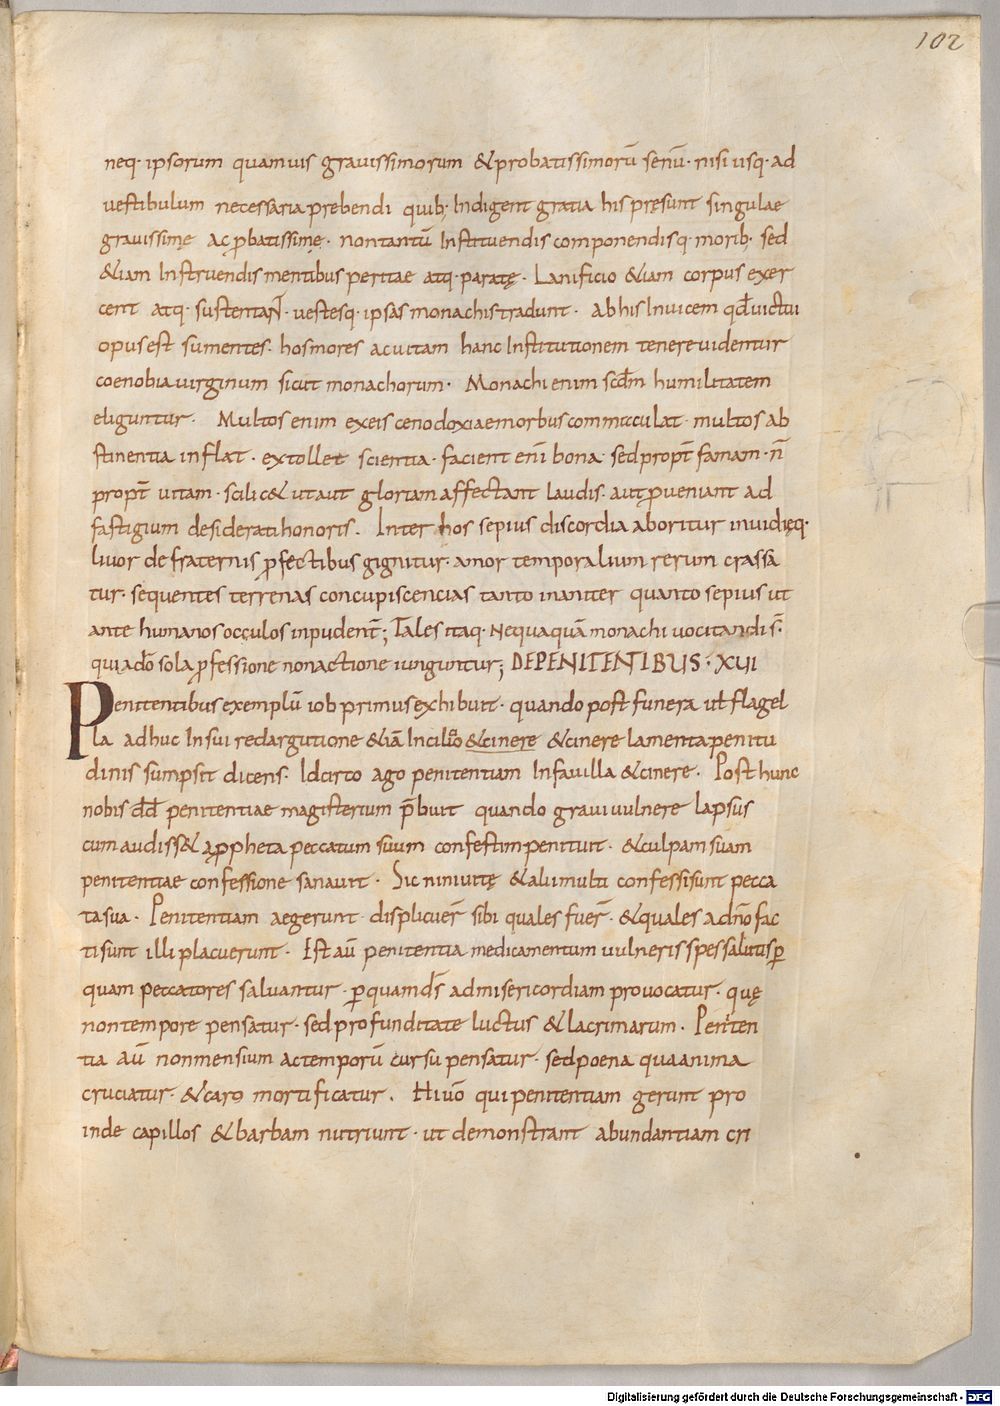 102
neq· ipsorum quamuis grauissimorum &probatissimorū senū· nisi usq· ad
uestibulum necessaria prebendi quib; Indigent gratia his pręsunt singulae
grauissimę ac ꝓbatissimę· nontantū Instituendis componendisq· morib; sed
&iam Instruendis mentibus peritae atq· paratę· Lanificio &iam corpus exer
cent atq· sustentaɴ̄t· uestesq· ipsas monachis tradunt· abhis Inuicem qd̄ uictui
opus est sumentes· hos mores ac uitam hanc Institutionem tenere uidentur
coenobia uirginum sicut monachorum· Monachi enim scd̄m humilitatem
eliguntur· Multos enim exeis cenodoxiae morbus commacculat· multos ab
stinentia inflat· extollet scientia· facient eni̅ bona· sed propt̄ famam· n̄
propt̄ uitam· scilic& ut aut gloriam affectant laudis· aut ꝑueniant ad
fastigium desiderati honoris· Inter hos sepius discordia aboritur inuidięq·
liuor de fraternis ꝓfectibus gignitur· amor temporalium rerum crassa
tur· sequentes terrenas concupiscencias tanto inaniter quanto sepius ut
ante humanos occulos inpudent̄; Tales itaq· Nequaquā monachi uocitandi s̄·
quia dō sola ꝓfessione non actione iunguntur; DEPENITENTIBUS· XUI
Penitentibus exemplū iob primus exhibuit· quando post funera ul flagel
la adhuc In sui redargutione &iā In cilitio &cinere &cinere lamenta penitu
dinis sumpsit dicens· Idcirco ago penitentiam In fauilla &cinere· Post hunc
nobis dd̄ penitentiae magisterium p̄buit quando graui uulnere lapsus
cum audiss& a ꝓpheta peccatum suum confestim penituit· &culpam suam
penitentiae confessione sanauit· Sic niniuitę &alii multi confessi sunt pecca
ta sua· Penitentiam aegerunt· displicuer̄ sibi quales fuer̄· &quales ad dn̄o fac
ti sunt illi placuerunt· Est aū penitentia medicamentum uulneris spes salutis ꝑ
quam peccatores saluantur· ꝑ quam ds̄ ad misericordiam prouocatur· quę
non tempore pensatur· sed profunditate luctus &lacrimarum· Peniten
tia aū non mensium ac temporū cursu pensatur· sed poena qua anima
cruciatur· &caro mortificatur· Hi uō qui penitentiam gerunt pro
inde capillos &barbam nutriunt· ut demonstrant abundantiam cri
Digitalisierung gefördert durch die Deutsche Forschungsgemeinschaft - DFG